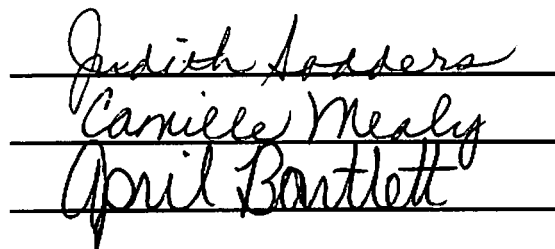 Judith Sadders
Camille Mealy
April Bartlett